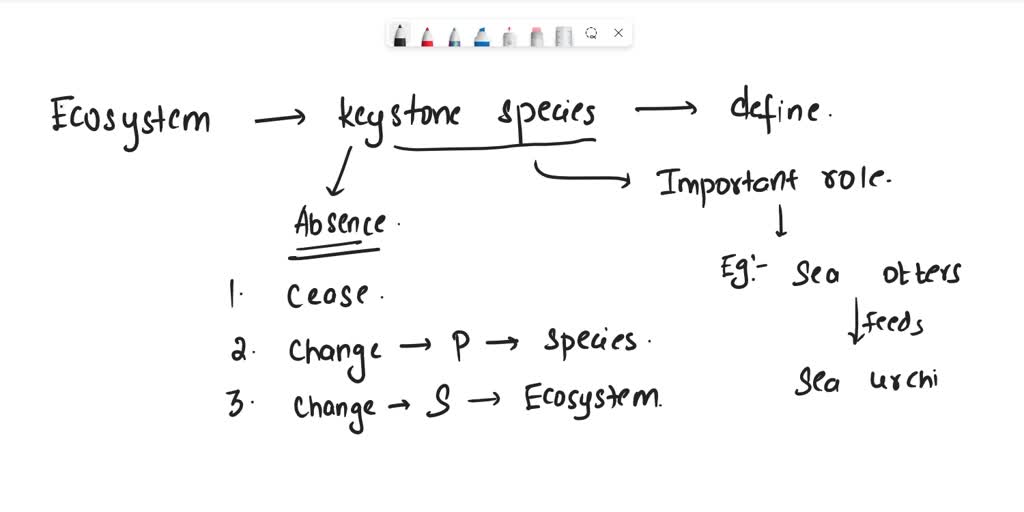 Ecosystem → keystone species → define.
→ Important role.
Absence.
Eg:- Sea otters
1. Cease.
feeds
2. Change → P → species.
Sea urchi
3. Change → S → Ecosystem.